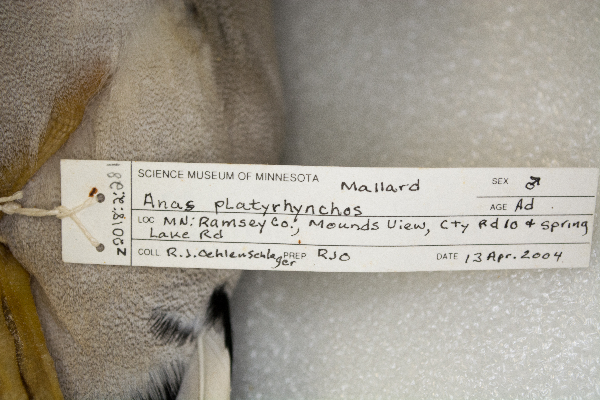 SCIENCE MUSEUM OF MINNESOTA Mallard SEX ♂
Anas platyrhynchos AGE Ad
LOC MN: Ramsey Co., Mounds View, Cty Rd 10 & Spring
Lake Rd
COLL R.J. Oehlenschlager PREP RJO DATE 13 Apr. 2004